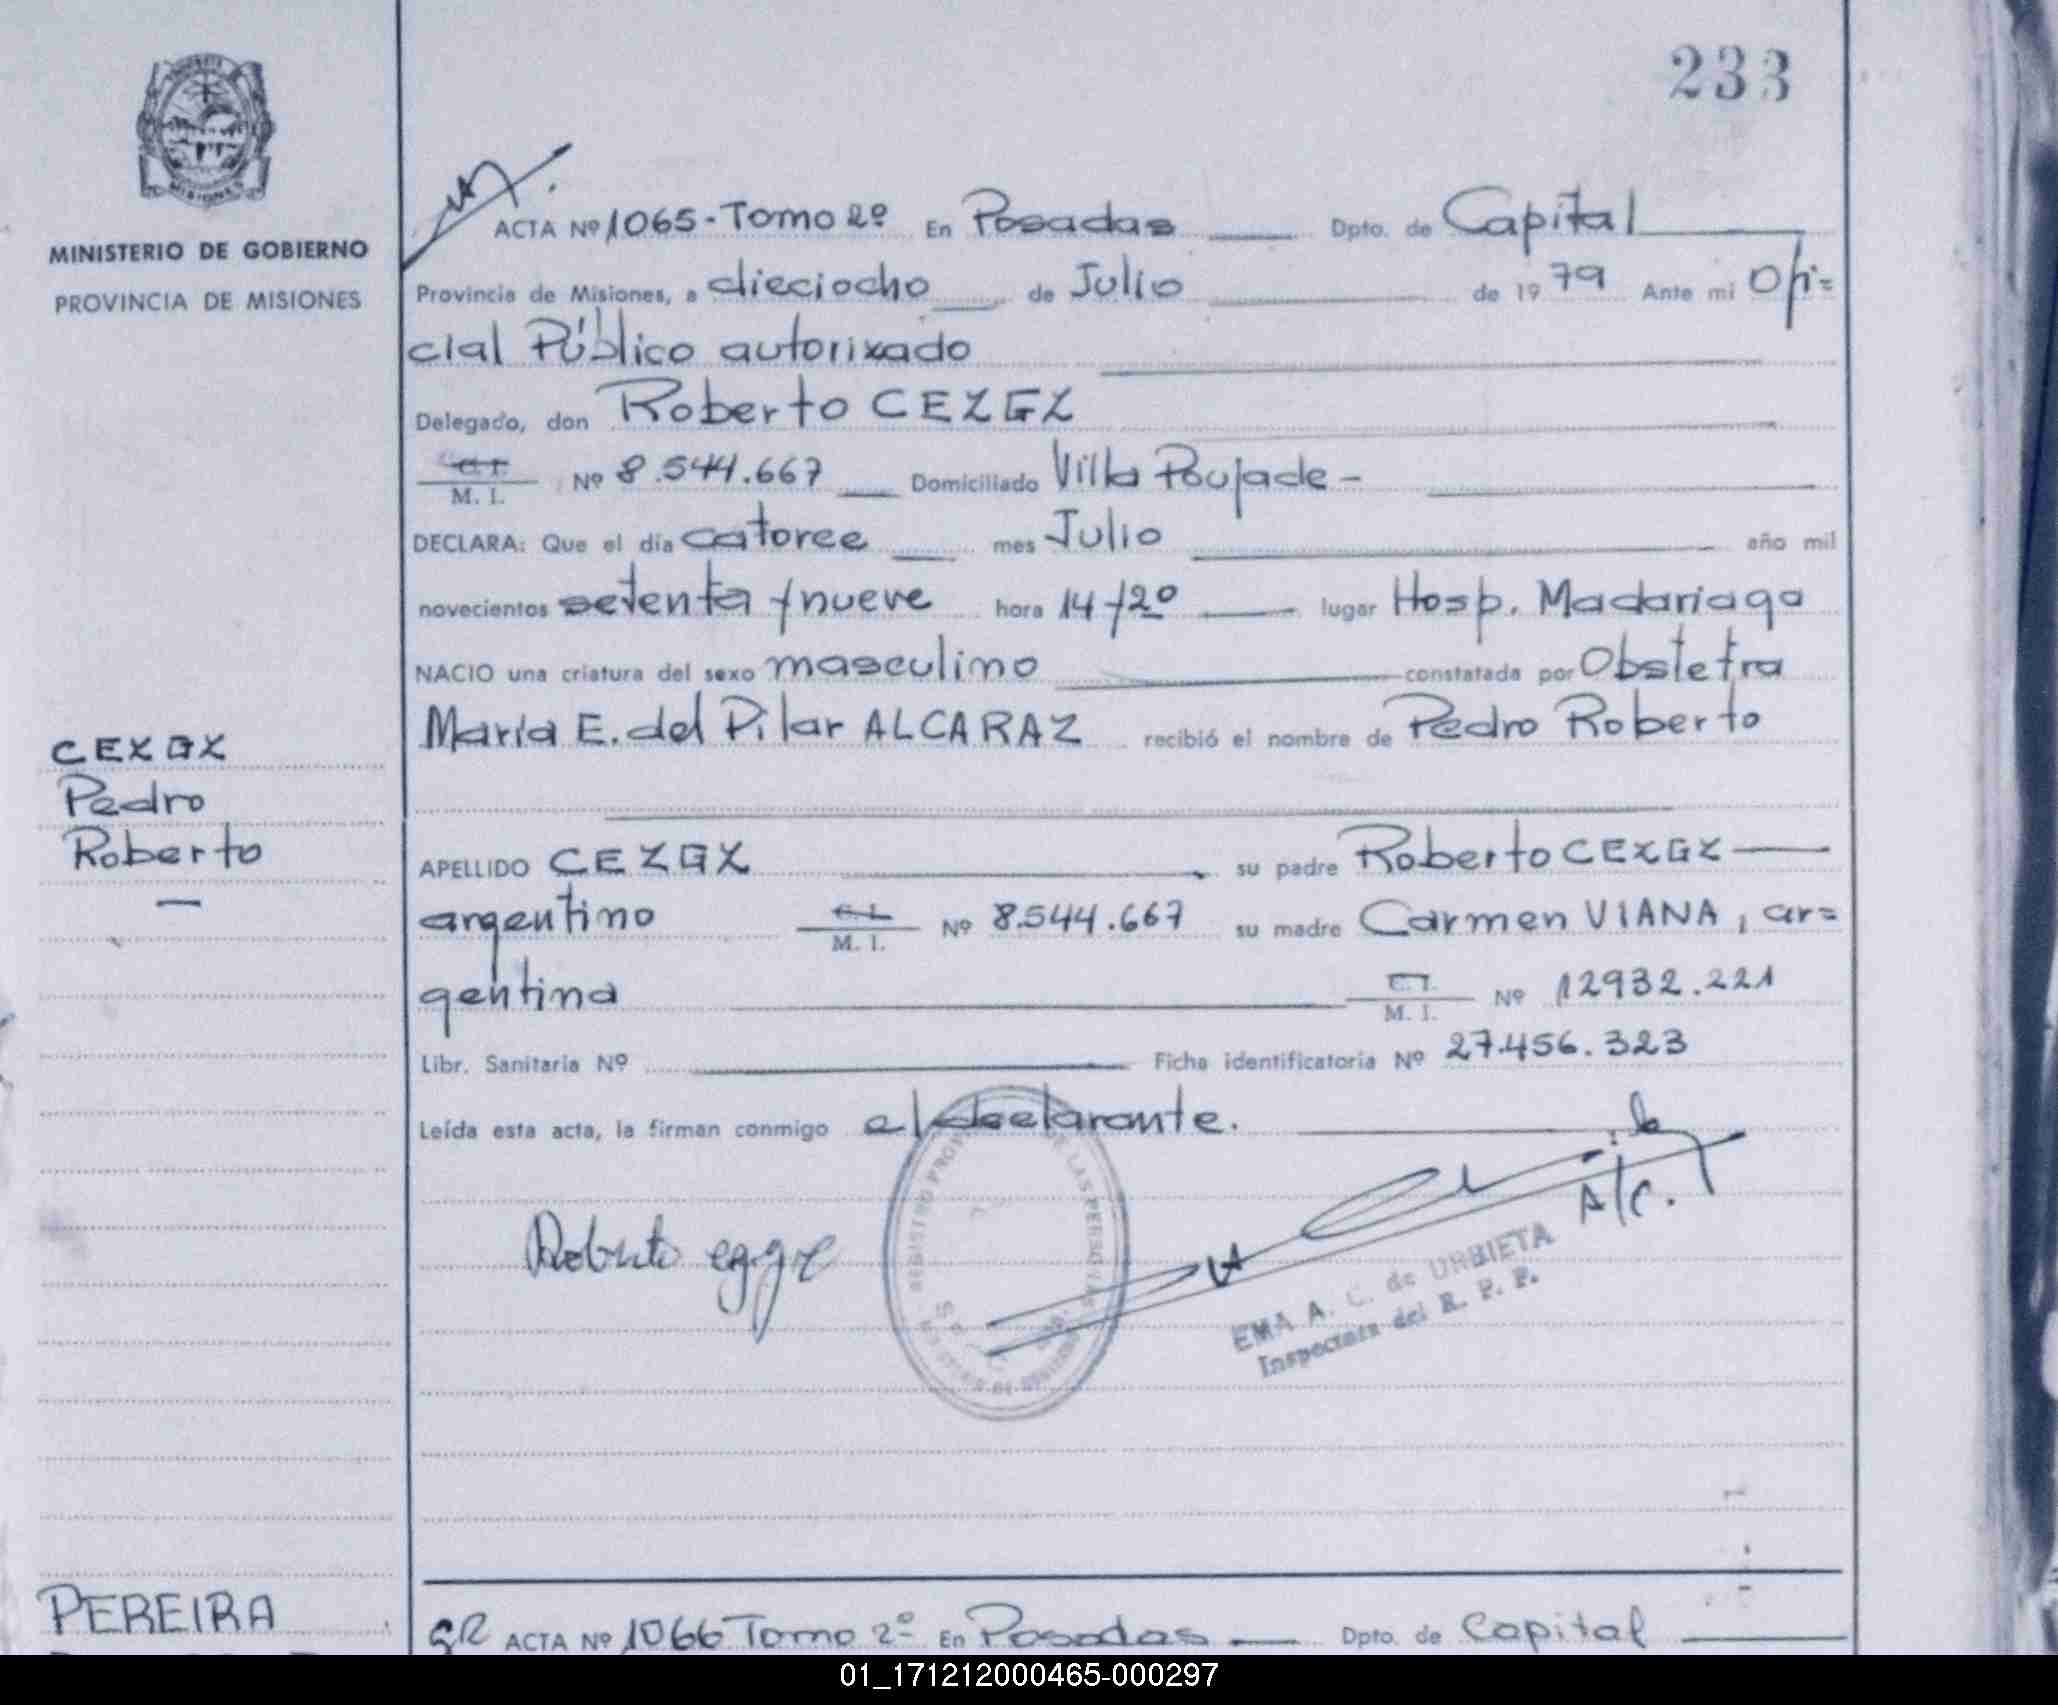 233
MINISTERIO DE GOBIERNO
PROVINCIA DE MISIONES
ACTA Nº 1065-Tomo 2º En Posadas Dpto. de Capital
Provincia de Misiones, a dieciocho de Julio de 1979 Ante mi Ofi=
cial Público autorixado
Delegado, don Roberto CEZGZ
C. I.
M. I. Nº 8.544.667 Domiciliado Villa Poujade-
DECLARA: Que el día catorce mes Julio año mil
novecientos setenta y nueve hora 14 y 20 lugar Hosp. Madariaga
NACIO una criatura del sexo masculino constatada por Obstetra
María E. del Pilar ALCARAZ recibió el nombre de Pedro Roberto
CEZGZ
Pedro
Roberto
APELLIDO CEZGZ su padre Roberto CEZGZ
argentino C. I.
M. I. Nº 8.544.667 su madre Carmen VIANA, ar=
gentina C. I.
M. I. Nº 12932.221
Libr. Sanitaria Nº Ficha identificatoria Nº 27.456.323
Leída esta acta, la firman conmigo el declarante.
A/C.
Roberto
REGISTRO DE LAS PERSONAS
EMA A. C. de URBIETA
Inspectora del R. P. P.
PEREIRA
ACTA Nº 1066 Tomo 2º En Posadas Dpto. de Capital
01_171212000465-000297